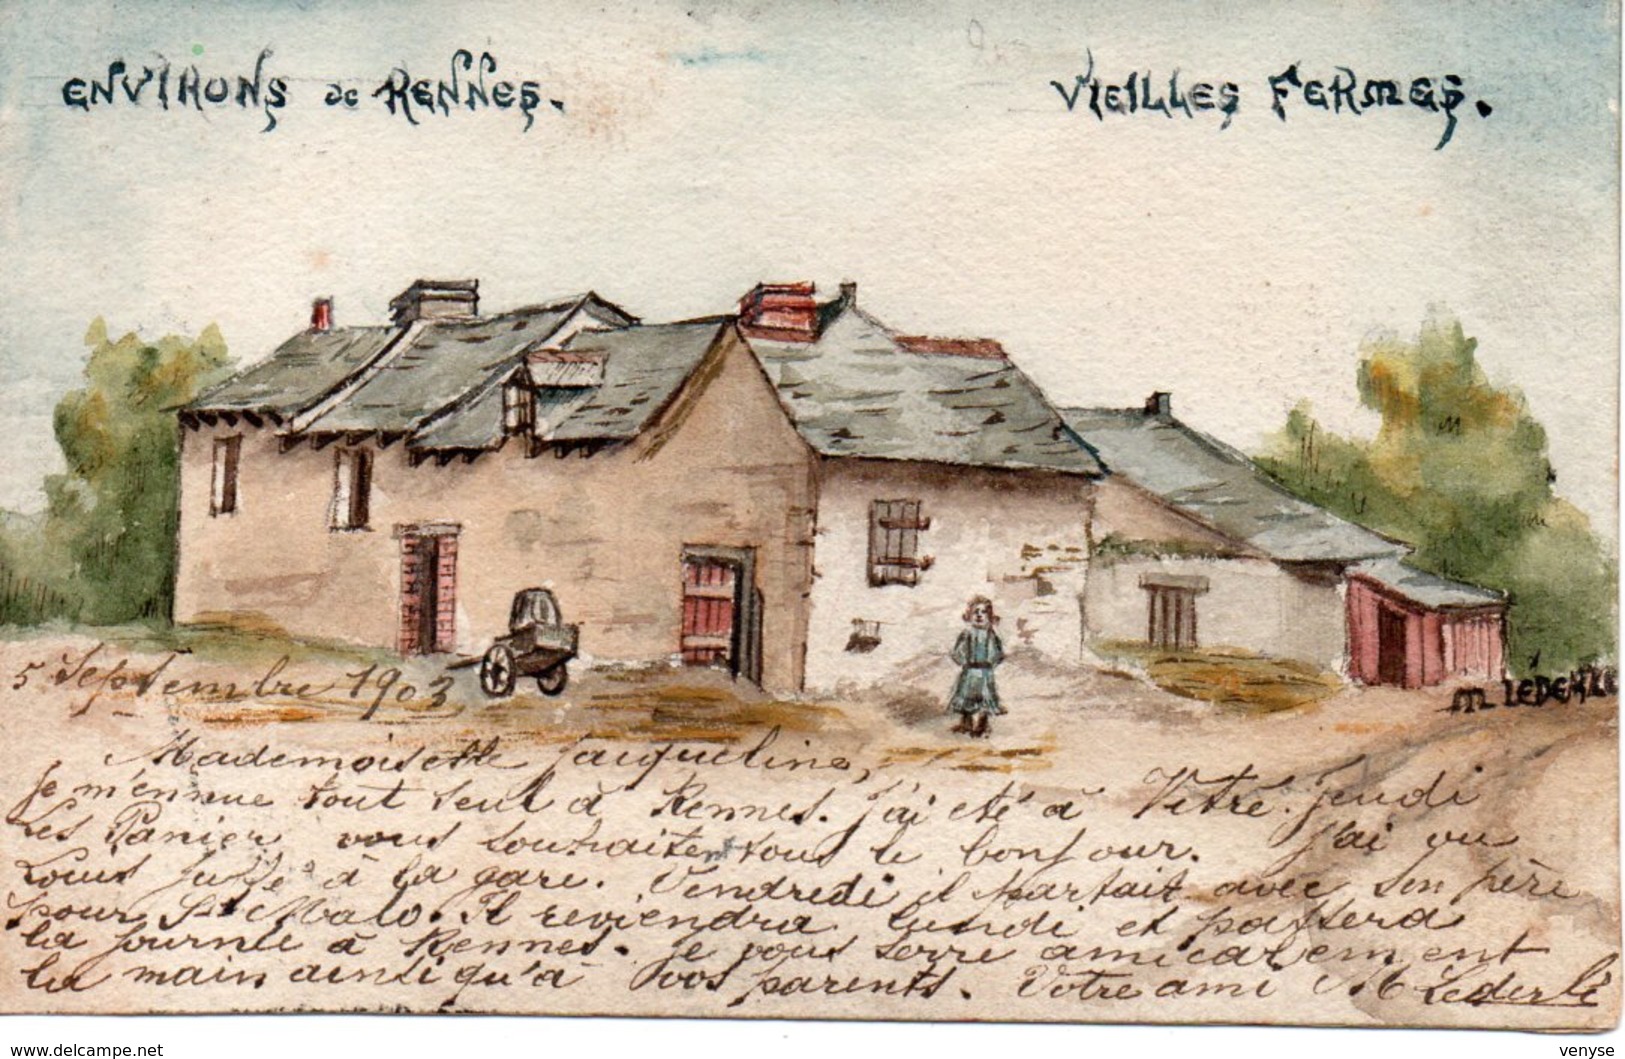 ENVIRONS de RENNES.
VIEILLES FERMES.
M LÉDERLÉ
5 Septembre 1903
Mademoiselle Jacqueline,
Je m'ennuie tout seul à Rennes. J'ai été à Vitré jeudi
Les Panier vous souhaitent tous le bonjour. J'ai vu
Louis à la gare. Vendredi il partait avec son père
pour St Malo. Il reviendra lundi et passera
la journée à Rennes. Je vous serre amicalement
la main ainsi qu'à vos parents. Votre ami M Léderlé
www.delcampe.net
venyse